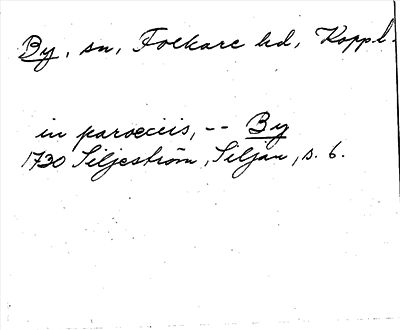 By, sn, Folkare hd, Koppl.
in paroeciis, -- By
1730 Siljeström, Siljan, s. 6.